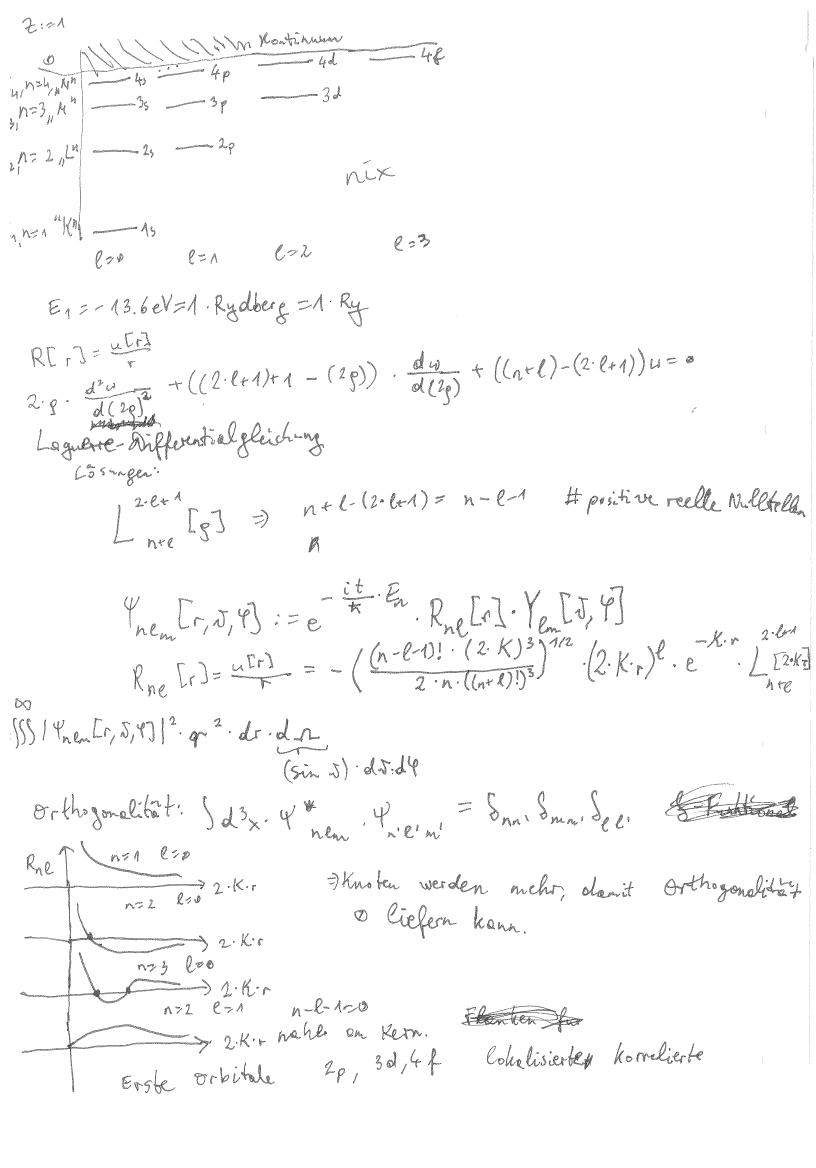 Z:=1
0 Kontinuum
4, n=4, „N“ 4s ... 4p 4d 4f
3, n=3 „M“ 3s 3p 3d
2, n=2 „L“ 2s 2p
nix
1, n=1 "K" 1s
l=0 l=1 l=2 l=3
E₁=-13.6eV=1·Rydberg=1·Ry
R[r]=u[r]/r
2·ρ·d²u/d(2ρ)²+((2·l+1)+1-(2ρ))·du/d(2ρ)+((n+l)-(2·l+1))u=0
Laguerre-Differentialgleichung
Lösungen:
L_{n+l}^{2·l+1}[ρ] ⇒ n+l-(2·l+1)=n-l-1 # positive reelle Nullstellen
Ψ_{nlm}[r,ϑ,φ]:=e^{-it/ħ·E_n}·R_{nl}[r]·Y_{lm}[ϑ,φ]
R_{nl}[r]=u[r]/r=-((n-l-1)!·(2·K)³/2·n·((n+l)!)³)^{1/2}·(2·K·r)^l·e^{-K·r}·L_{n+l}^{2·l+1}[2·K·r]
∞
∭|Ψ_{nlm}[r,ϑ,φ]|²·r²·dr·dΩ
(sin ϑ)·dϑ·dφ
Orthogonalität: ∫d³x·Ψ*_{nlm}·Ψ_{n'l'm'}=δ_{nn'}δ_{mm'}δ_{ll'}
R_{nl} n=1 l=0
2·K·r ⇒Knoten werden mehr, damit Orthogonalität
n=2 l=0
0 liefern kann.
2·K·r
n=3 l=0
2·K·r
n=2 l=1 n-l-1=0
2·K·r nahe am Kern.
Erste Orbitale 2p, 3d, 4f lokalisierte, korrelierte